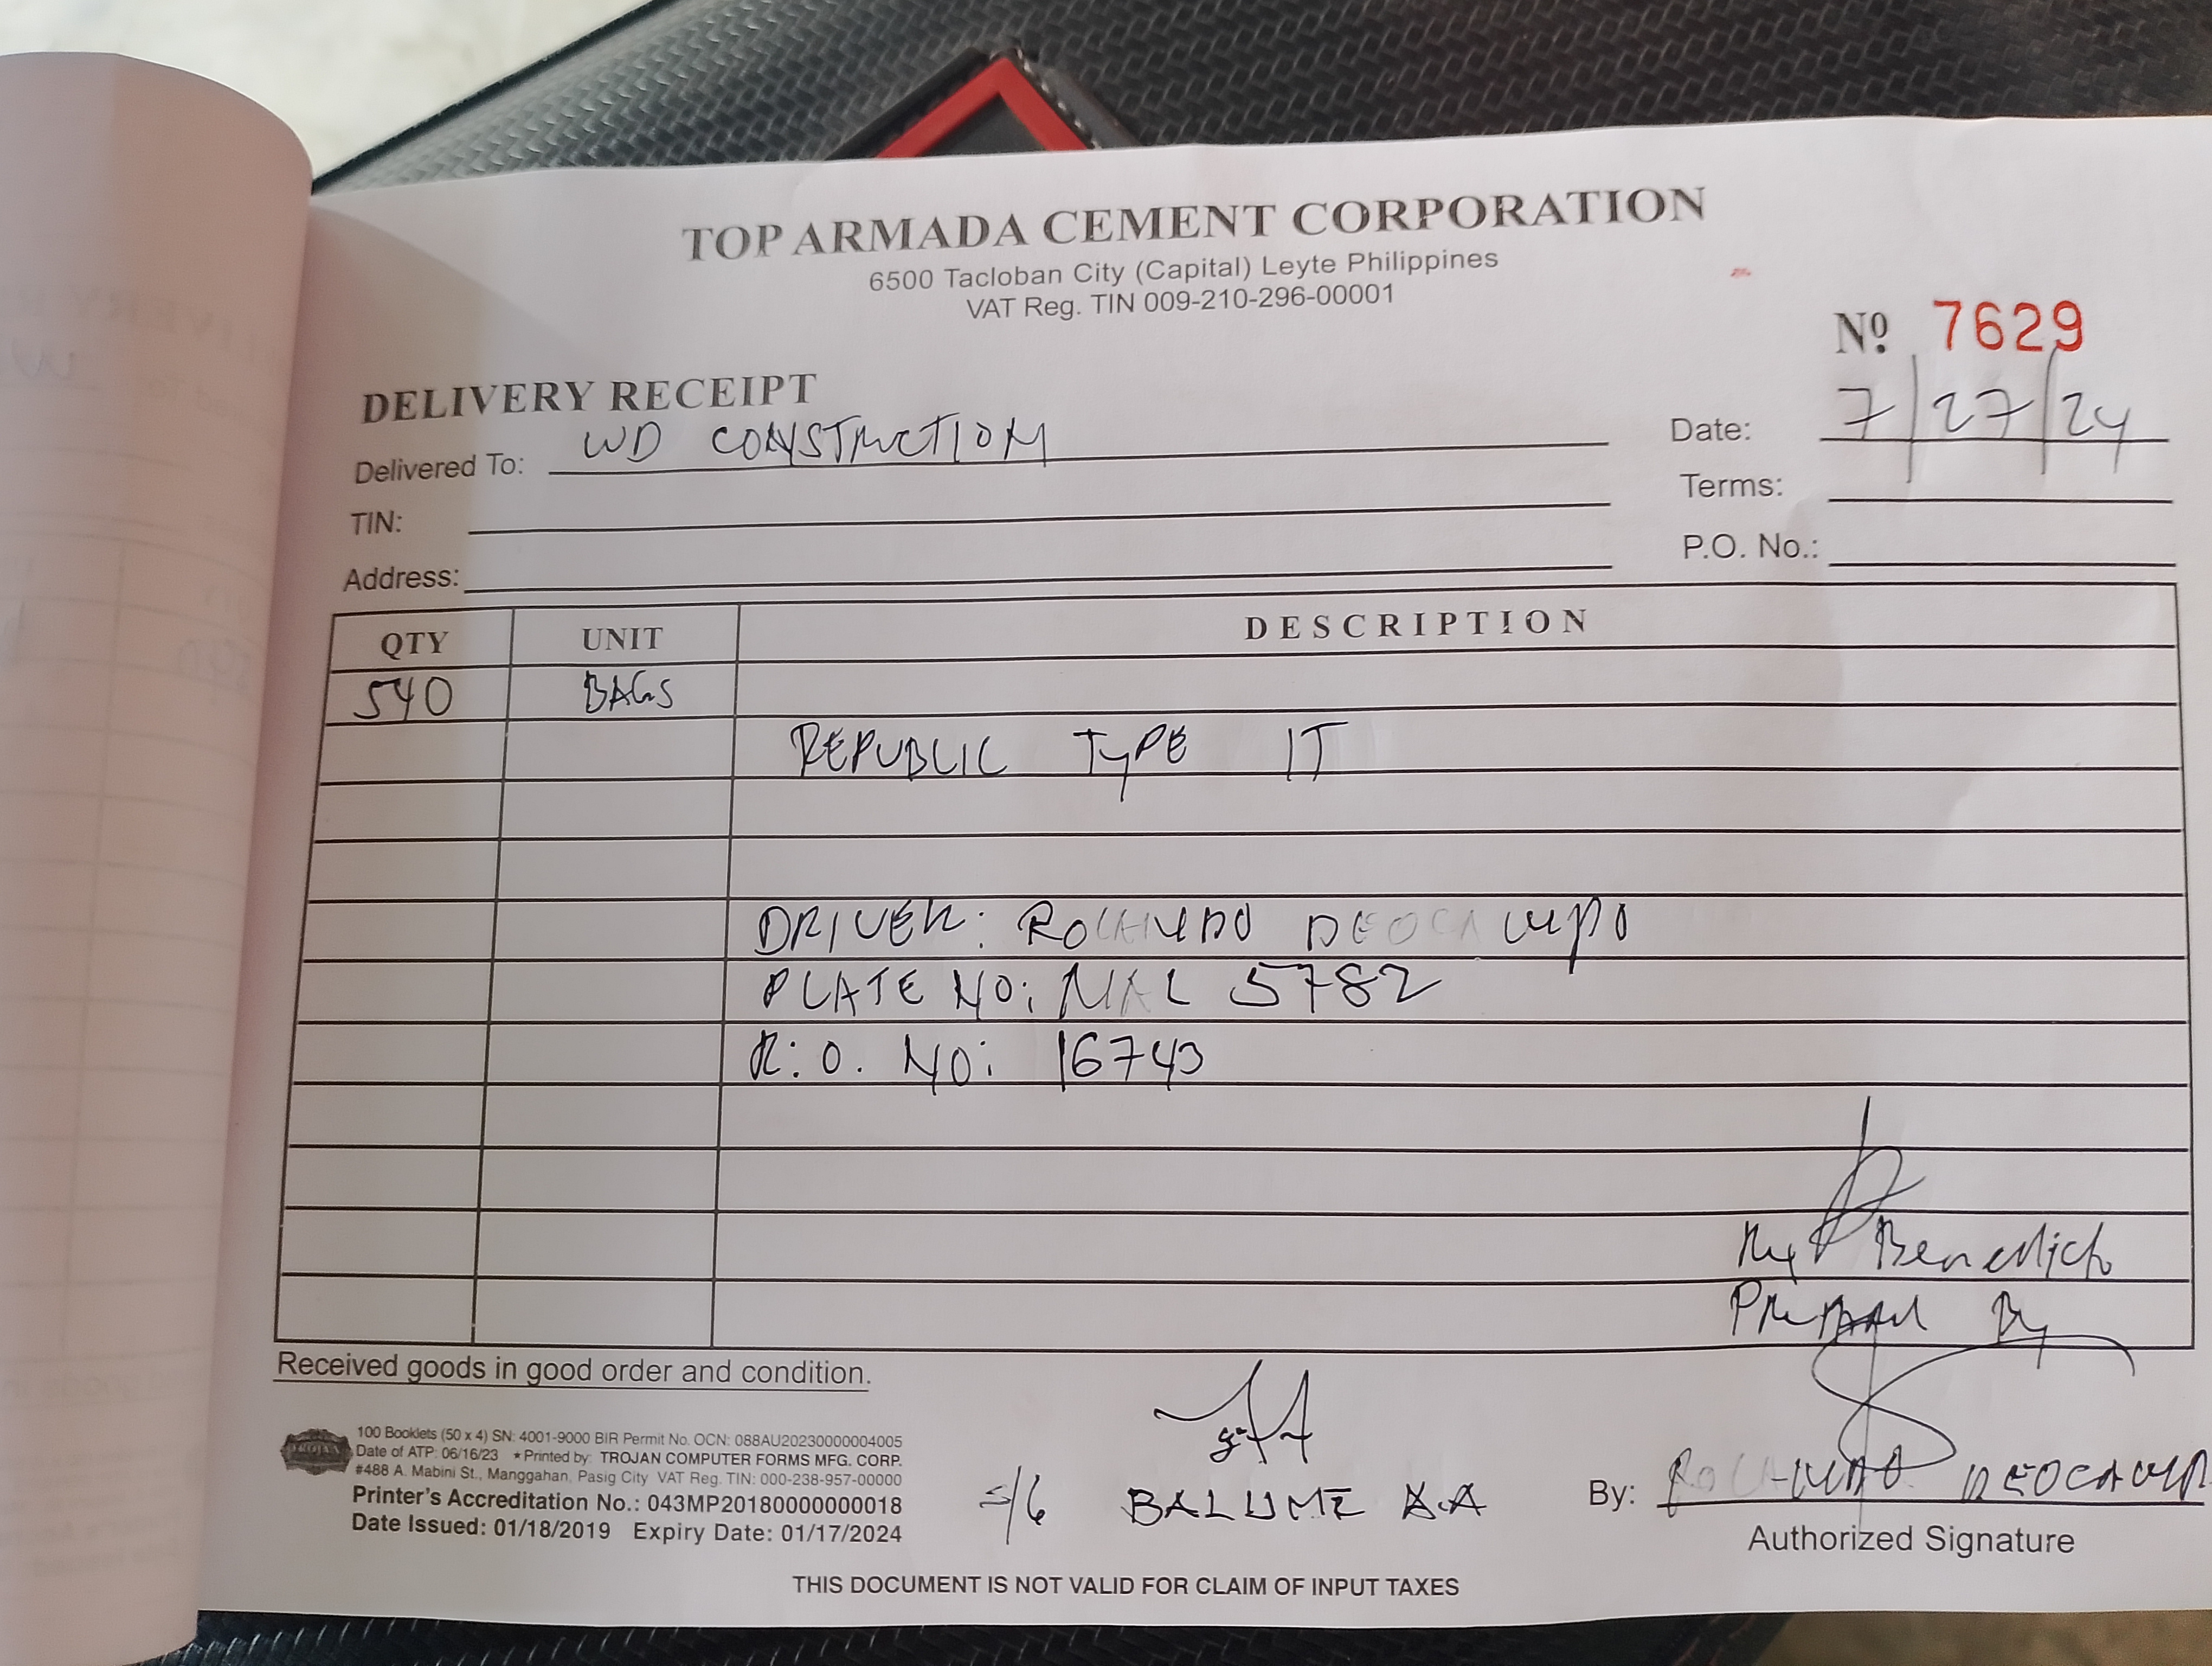 TOP ARMADA CEMENT CORPORATION
6500 Tacloban City (Capital) Leyte Philippines
VAT Reg. TIN 009-210-296-00001
Nº 7629
DELIVERY RECEIPT
Delivered To: WD CONSTRUCTION
Date: 7/27/24
TIN:
Terms:
Address:
P.O. No.:
QTY UNIT DESCRIPTION
540 BAGS
REPUBLIC TYPE IT
DRIVER: ROLANDO DEOCAMPO
PLATE NO: 5782
R.O. NO: 16743
Benedicto
Prepared By
Received goods in good order and condition.
TROJAN
100 Booklets (50 x 4) SN: 4001-9000 BIR Permit No. OCN: 088AU20230000004005
Date of ATP: 06/16/23 ★Printed by: TROJAN COMPUTER FORMS MFG. CORP.
#488 A. Mabini St., Manggahan, Pasig City VAT Reg. TIN: 000-238-957-00000
Printer's Accreditation No.: 043MP20180000000018
Date Issued: 01/18/2019 Expiry Date: 01/17/2024
S/G BALUME
By: ROLANDO DEOCAMP
Authorized Signature
THIS DOCUMENT IS NOT VALID FOR CLAIM OF INPUT TAXES